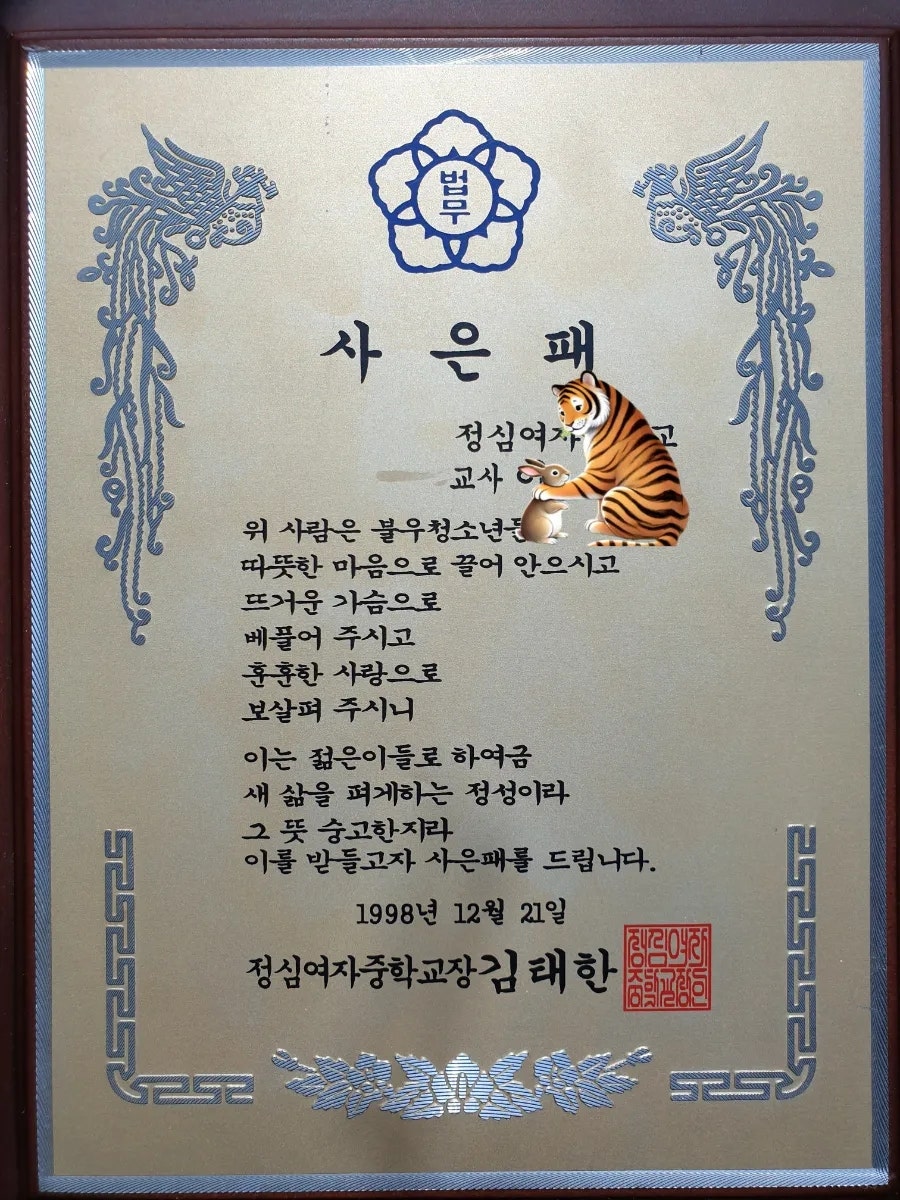 법무
사 은 패
정심여자 고
교사
위 사람은 불우청소년들
따뜻한 마음으로 끌어 안으시고
뜨거운 가슴으로
베풀어 주시고
훈훈한 사랑으로
보살펴 주시니
이는 젊은이들로 하여금
새 삶을 펴게하는 정성이라
그 뜻 숭고한지라
이를 받들고자 사은패를 드립니다.
1998년 12월 21일
정심여자중학교장 김태한